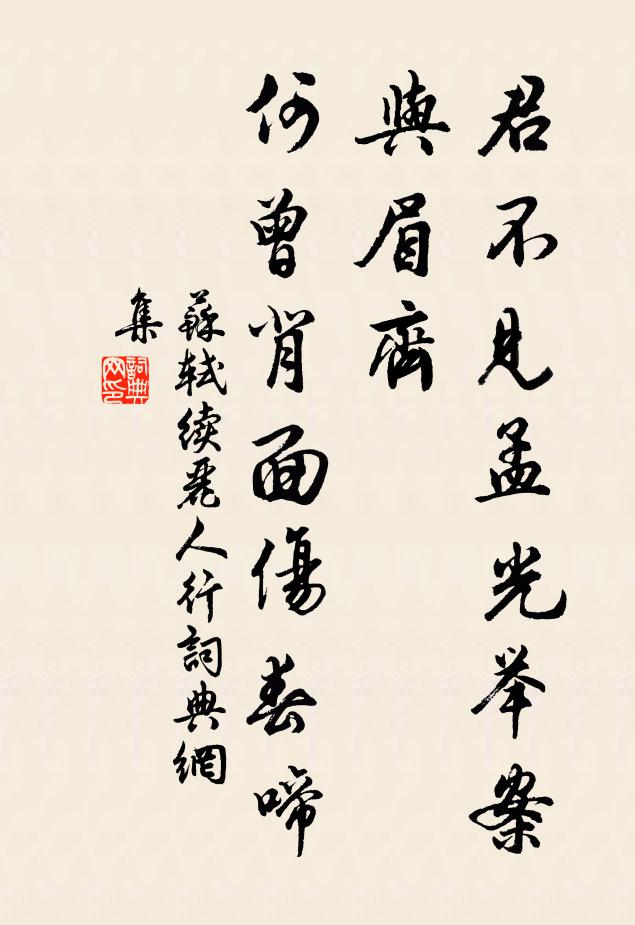 君不見孟光举案
與眉齊
何曾背面傷春啼
蘇軾续麗人行詞典網
集
詞典
网印